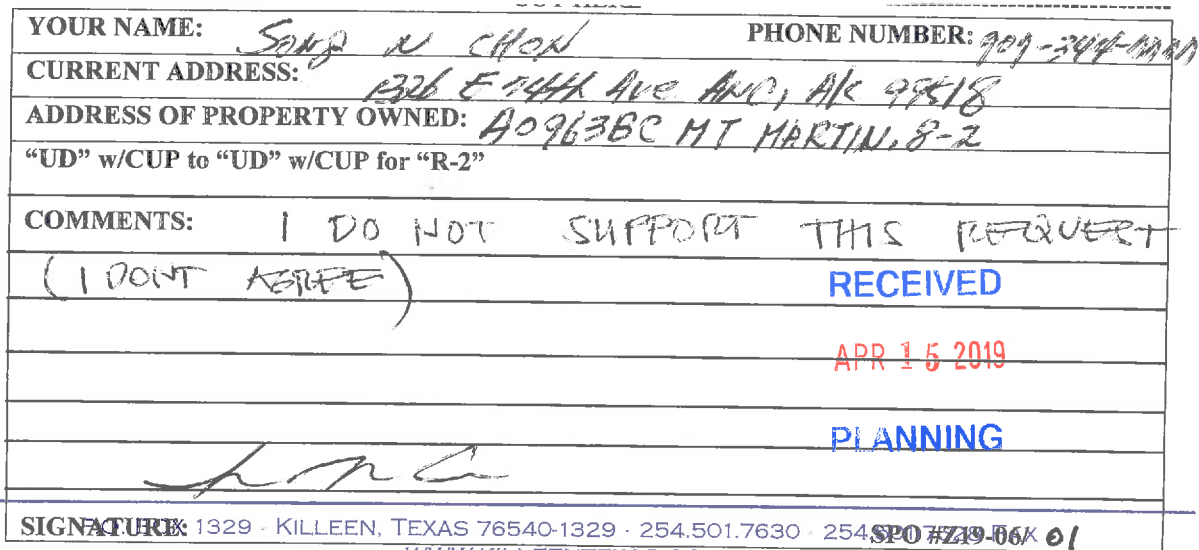 YOUR NAME: SONG N CHON PHONE NUMBER: 907-344-
CURRENT ADDRESS: 1326 E 74th Ave ANC, AK 99518
ADDRESS OF PROPERTY OWNED: A0963BC MT MARTIN, 8-2
“UD” w/CUP to “UD” w/CUP for “R-2”
COMMENTS: I DO NOT SUPPORT THIS REQUEST
(I DONT AGREE)
RECEIVED
APR 15 2019
PLANNING
SIGNATURE: 1329 · KILLEEN, TEXAS 76540-1329 · 254.501.7630 · SPO #Z19-06/ 01